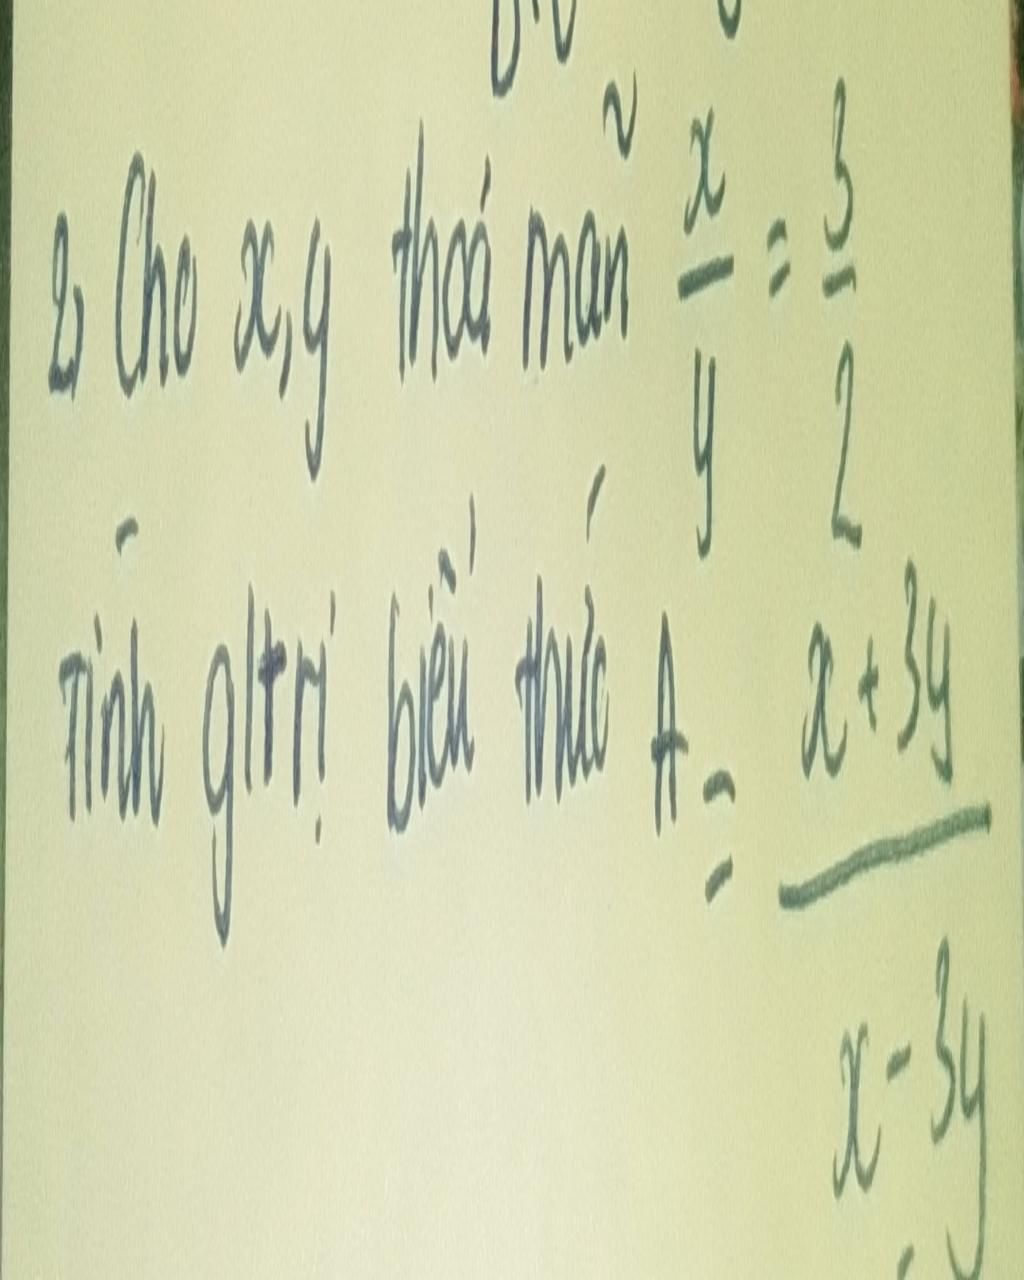 2, Cho x, y thoả mãn x/y = 3/2
Tính gltrị biểu thức A = (x + 3y)/(x - 3y)